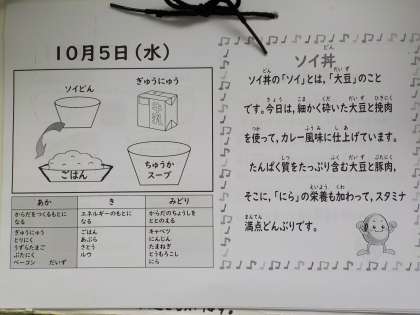 10月5日（水）
ソイどん
ぎゅうにゅう
牛乳
ごはん
ちゅうか
スープ
あか
き
みどり
からだをつくるもとに
なる
エネルギーのもとに
なる
からだのちょうしを
ととのえる
ぎゅうにゅう
とりにく
うずらたまご
ぶたにく
ベーコン だいず
ごはん
あぶら
さとう
ルウ
キャベツ
にんじん
たまねぎ
とうもろこし
にら
ソイ丼
ソイ丼の「ソイ」とは、「大豆」のこと
です。今日は、細かく砕いた大豆と挽肉
を使って、カレー風味に仕上げています。
たんぱく質をたっぷり含む大豆と豚肉，
そこに、「にら」の栄養も加わって，スタミナ
満点どんぶりです。